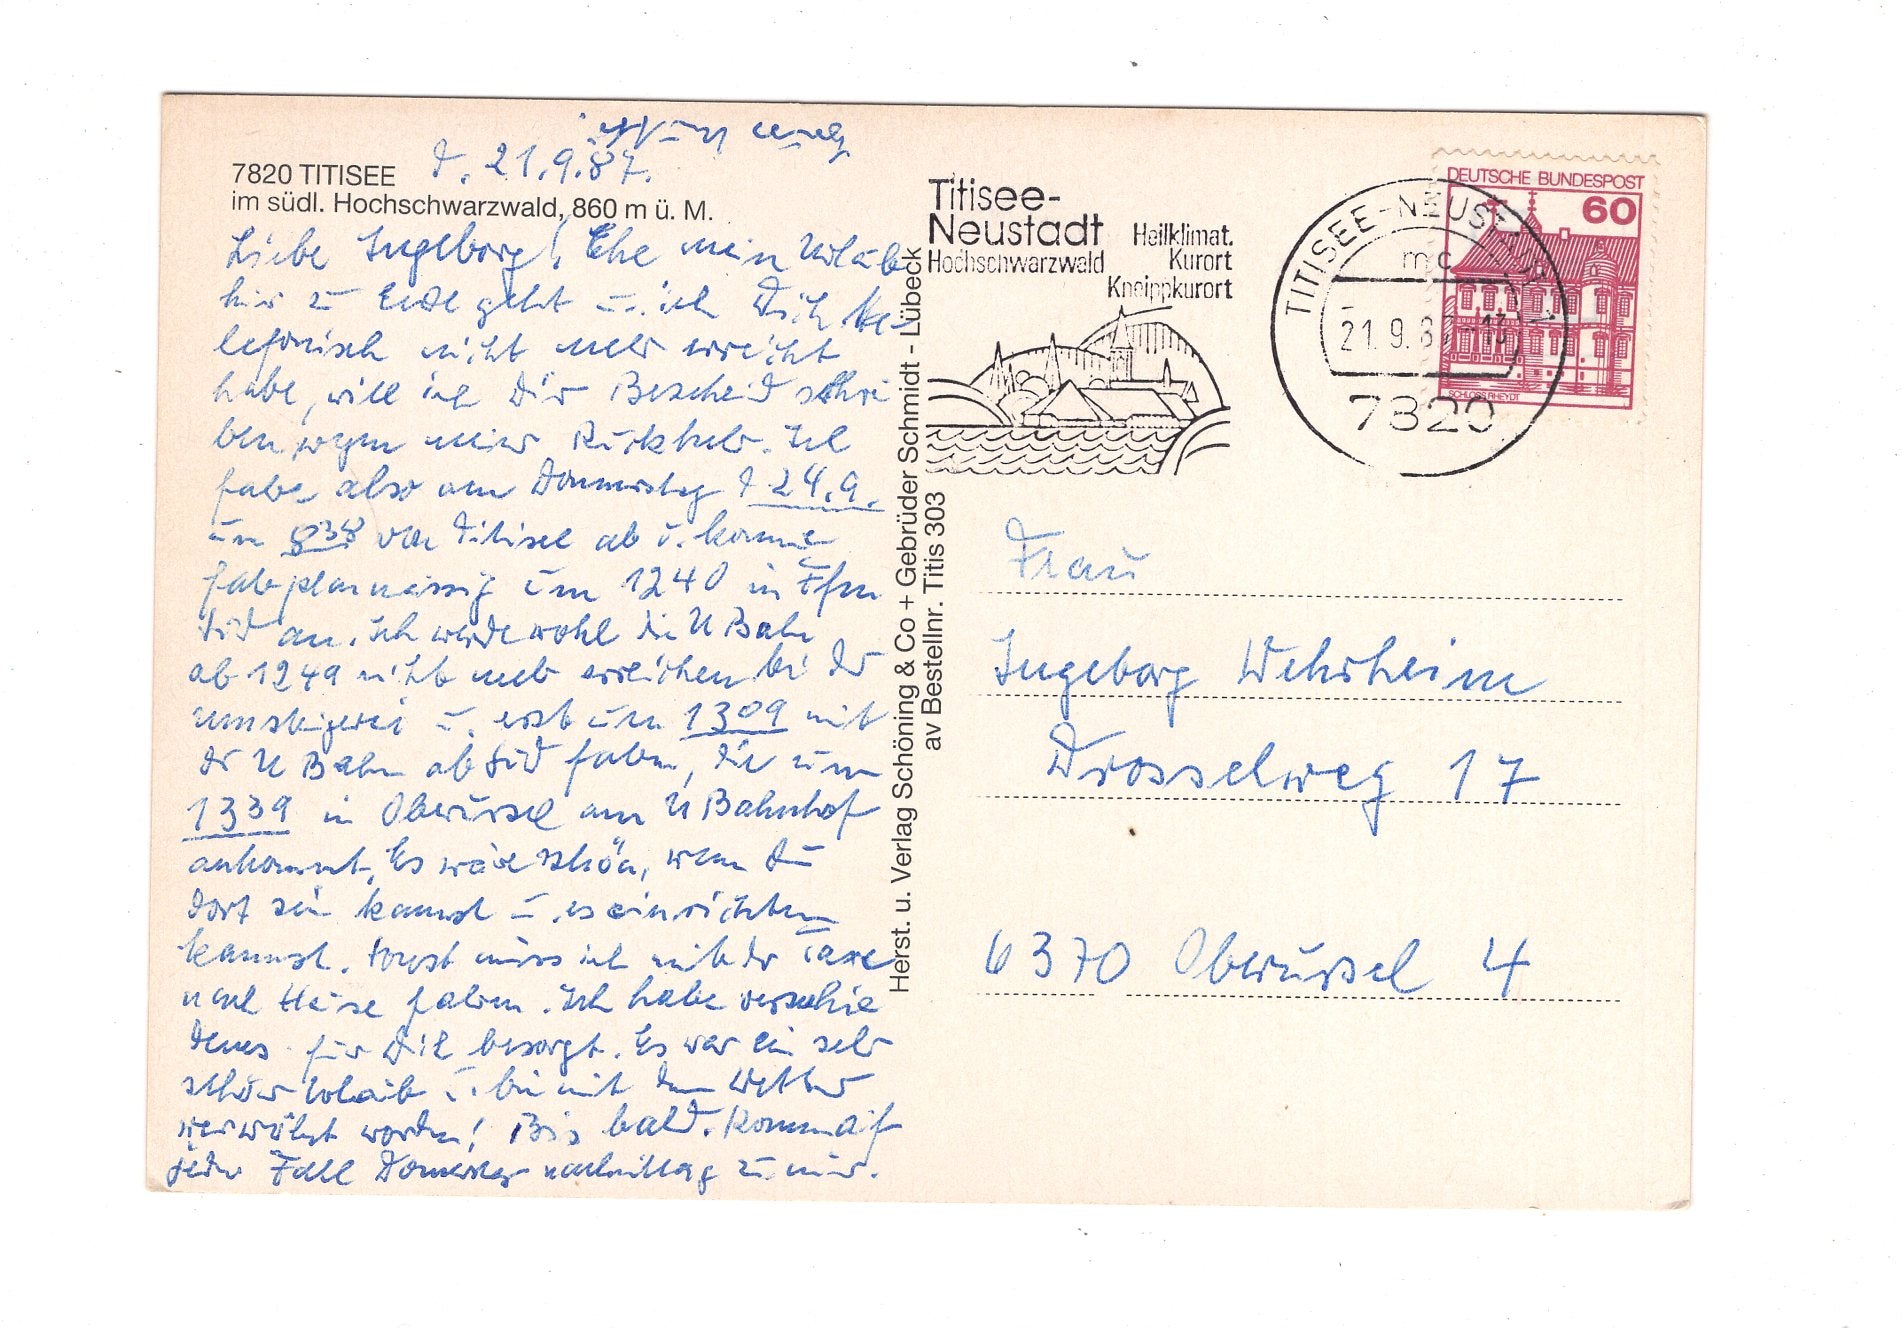 7820 TITISEE
d. 21.9.87.
im südl. Hochschwarzwald, 860 m ü. M.
Liebe Ingeborg! Ehe mein Urlaub
hier zu Ende geht u. ich Dich te-
lefonisch nicht mehr erreicht
habe, will ich Dir Bescheid schrei
ben, wegen meiner Rückkehr. Ich
fahre also am Donnerstag d 24.9.
um 838 von Titisee ab u. komme
fahrplanmässig um 1240 in Ffm
Süd an. Ich werde wohl die U Bahn
ab 1249 nicht mehr erreichen bei der
umsteigerei u. erst um 1309 mit
der U Bahn ab Süd fahren, die um
1339 in Oberursel am U Bahnhof
ankommt. Es wäre schön, wenn Du
dort sein kannst u. es einrichten
kannst. Sonst muss ich mit der Taxe
nach Hause fahren. Ich habe verschie
denes für Dich besorgt. Es war ein sehr
schöner Urlaub u. bin mit dem Wetter
verwöhnt worden! Bis bald. Komm auf
jeden Fall Donnerstag nachmittag zu mir.
Herst. u. Verlag Schöning & Co + Gebrüder Schmidt - Lübeck
av Bestellnr. Titis 303
Titisee-
Neustadt
Hochschwarzwald
Heilklimat.
Kurort
Kneippkurort
TITISEE-NEUSTADT 1
mc
21.9.87-13
7820
DEUTSCHE BUNDESPOST
60
SCHLOSS RHEYDT
Frau
Ingeborg Wehrheim
Drosselweg 17
6370 Oberursel 4